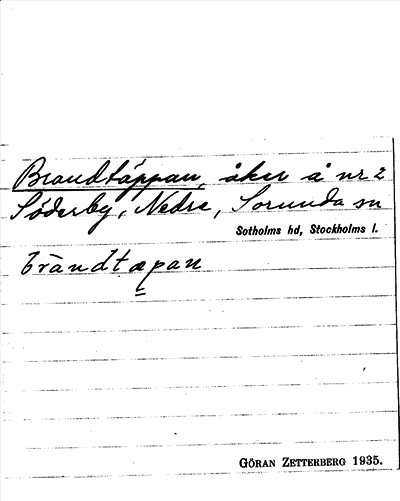 Brandtäppan, åker å nr 2
Söderby, Nedre, Sorunda sn
Sotholms hd, Stockholms l.
bràndtæpan
GÖRAN ZETTERBERG 1935.